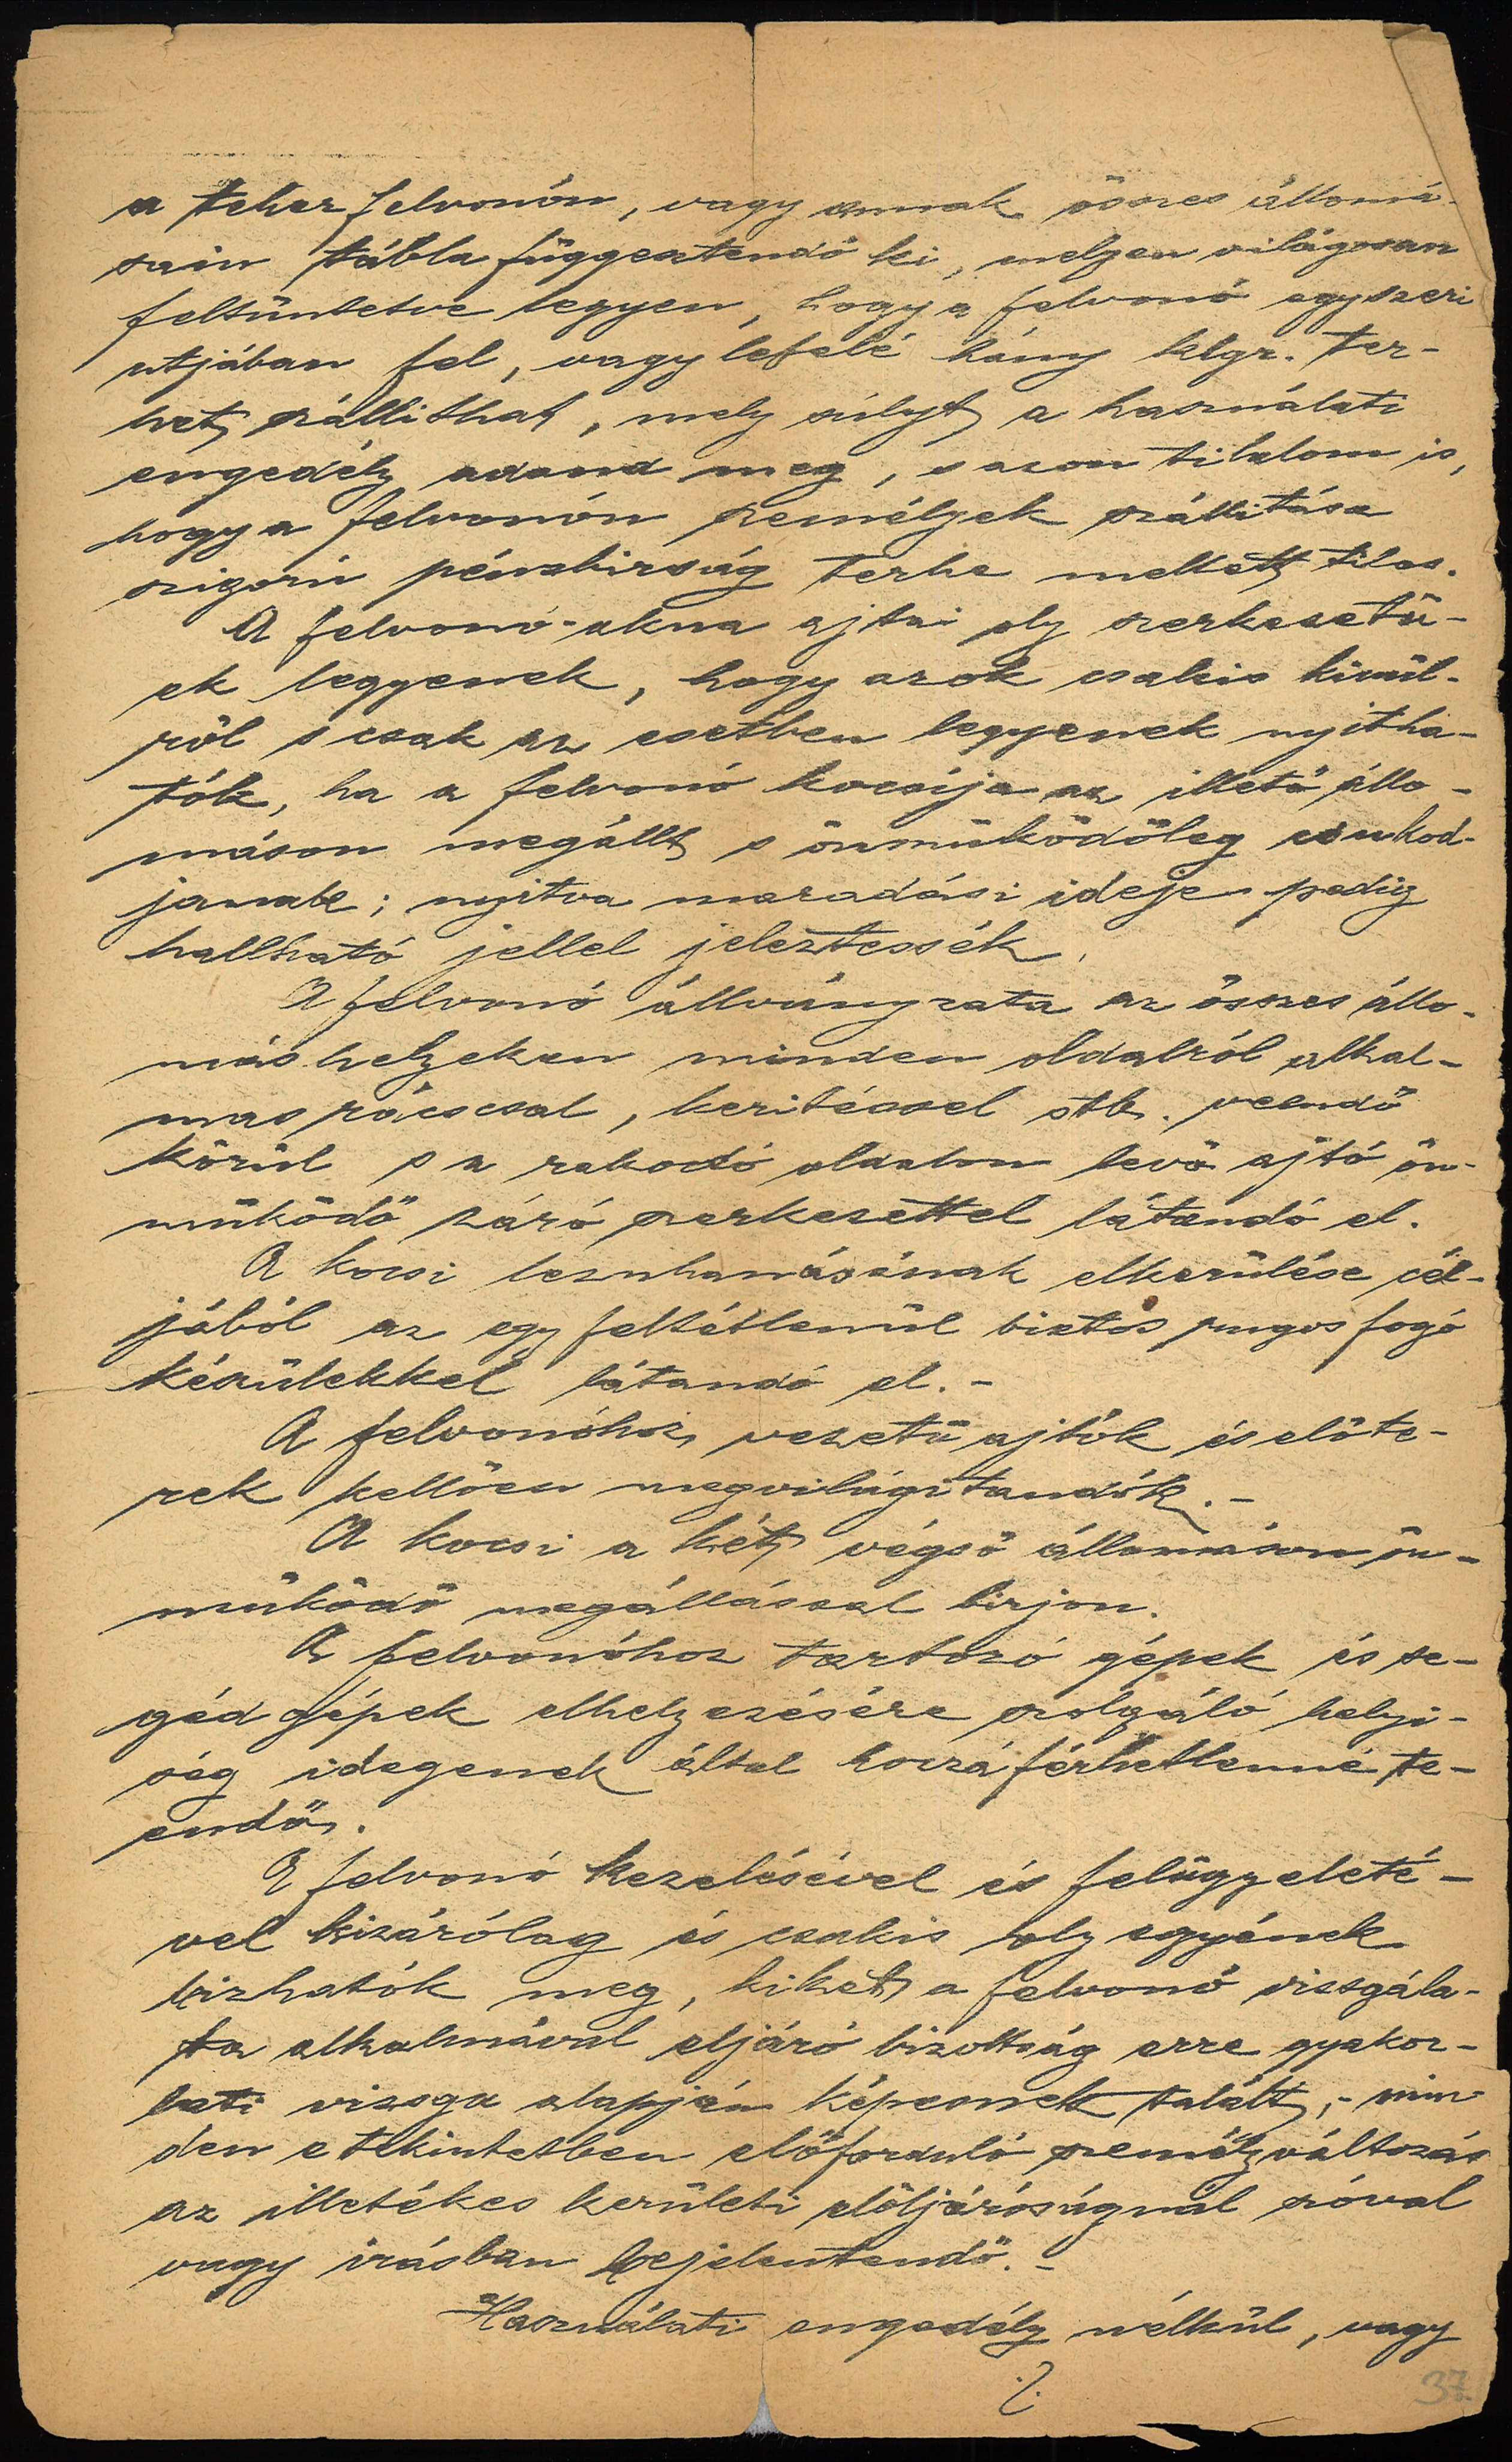 a teher felvonón, vagy annak összes állomá-
sain tábla függesztendő ki, melyen világosan
feltüntetve legyen, hogy a felvonó egyszeri
utjában fel, vagy lefelé hány klgr. ter-
het szállithat, mely súlyt a használati
engedély adand meg, s azon tilalom is,
hogy a felvonón személyek szállitása
szigorú pénzbirság terhe mellett tilos.
A felvonó-akna ajtai oly szerkezetü-
ek legyenek, hogy azok csakis kivül-
ről s csak az esetben legyenek nyitha-
tók, ha a felvonó kocsija az illető állo-
máson megállt s önműködőleg csukod-
janak; nyitva maradási ideje pedig
hallható jellel jeleztessék.
A felvonó állványzata az összes állo-
máshelyeken minden oldalról alkal-
mas ráccsal, keritéssel stb. veendő
körül s a rakodó oldalon levő ajtó ön-
működő záró szerkezettel látandó el.
A kocsi lezuhanásának elkerülése cél-
jából az egy feltétlenül biztos rugós fogó
készülékkel látandó el.-
A felvonóhoz vezető ajtók és előte-
rek kellően megvilágitandók.-
A kocsi a két végső állomáson ön-
működő megállással birjon.
A felvonóhoz tartozó gépek és se-
gédgépek elhelyezésére szolgáló helyi-
ség idegenek által hozzáférhetlenné te-
endő.
A felvonó kezelésével és felügyeleté-
vel kizárólag és csakis oly egyének
bizhatók meg, kiket a felvonó vizsgála-
ta alkalmával eljáró bizottság erre gyakor-
lati vizsga alapján képesnek talált,- min-
den e tekintetben előforduló személyváltozás
az illetékes kerületi elöljáróságnál szóval
vagy irásban bejelentendő.-
Használati engedély nélkül, vagy
./.
37.